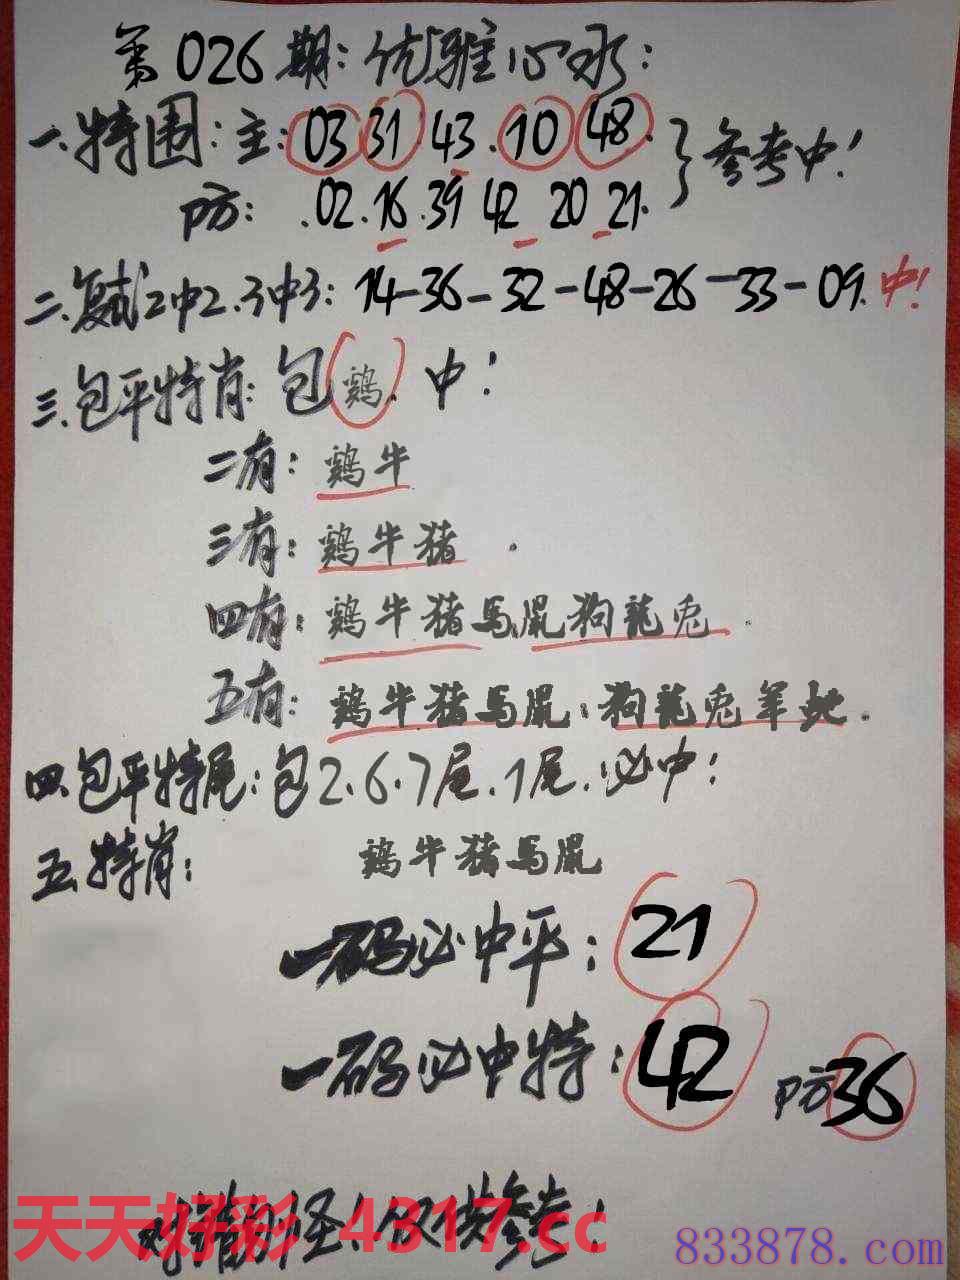 第026期:优雅心水:
一.特围:主:03 31.43.10 48.
防:.02.16.39 42 20 21.
参考中!
二.复试2中2.3中3:14-36-32-48-26-33-09.中!
三.包平特肖:包鷄.中!
二有:鷄牛
三有:鷄牛猪.
四有:鷄牛猪馬鼠狗龍兎.
五有:鷄牛猪馬鼠:狗龍兎羊虵.
四.包平特尾:包2.6.7尾.1尾.必中:
五.特肖:鷄牛猪馬鼠
一码必中平:21
一码必中特:42 防36
怪!仅供参考!
天天好彩 4317.cc
833878.com